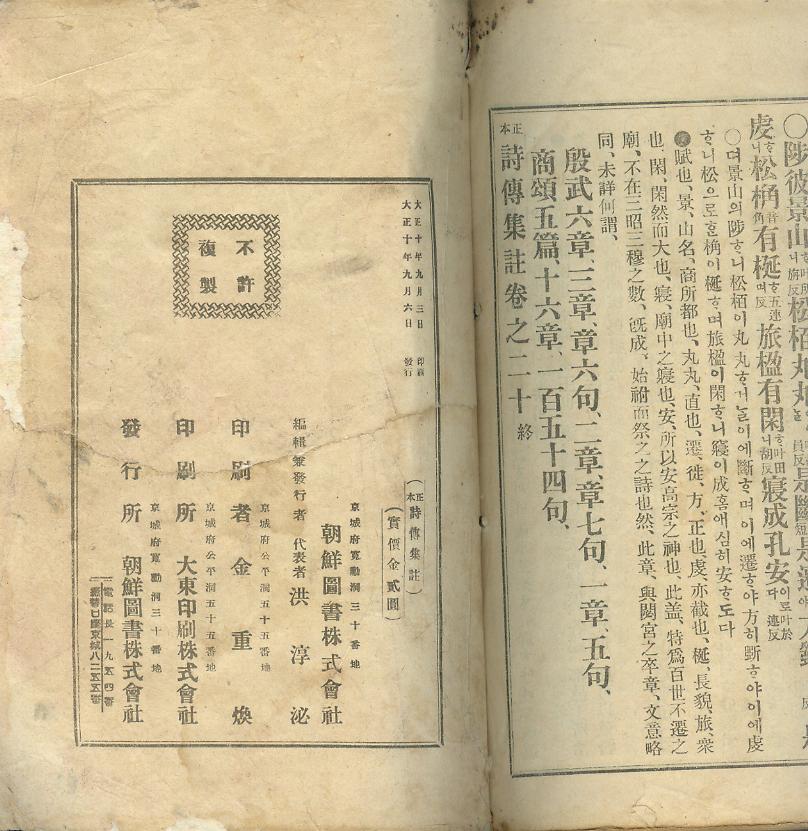 ○陟彼景山松栢丸丸
虔松桷有梴旅楹有閑寢成孔安
○뎌景山의陟ᄒᆞ니松栢이丸丸ᄒᆞ거ᄂᆞᆯ이에斷ᄒᆞ며이에遷ᄒᆞ야方히斲ᄒᆞ야이에虔
ᄒᆞ니松으로ᄒᆞᆫ桷이梴ᄒᆞ며旅楹이閑ᄒᆞ니寢이成홈애심히安ᄒᆞ도다
賦也、景、山名、商所都也、丸丸、直也、遷、徙、方、正也、虔、亦截也、梴、長貌、旅、衆
也、閑、閑然而大也、寢、廟中之寢也、安、所以安高宗之神也、此盖、特爲百世不遷之
廟、不在三昭三穆之數、旣成、始祔而祭之之詩也然、此章、與閟宮之卒章、文意略
同、未詳何謂、
殷武六章、三章、章六句、二章、章七句、一章、五句、
商頌五篇、十六章、一百五十四句、
正本 詩傳集註卷之二十 終
大正十年九月三日 印刷
大正十年九月六日 發行
不許
複製
(正本 詩傳集註)
(實價金貳圓)
京城府寬勳洞三十番地
朝鮮圖書株式會社
編輯兼發行者 代表者 洪淳泌
京城府公平洞五十五番地
印刷者 金重煥
京城府公平洞五十五番地
印刷所 大東印刷株式會社
京城府寬勳洞三十番地
發行所 朝鮮圖書株式會社
電話長一九五四番
振替口座京城八二五五番